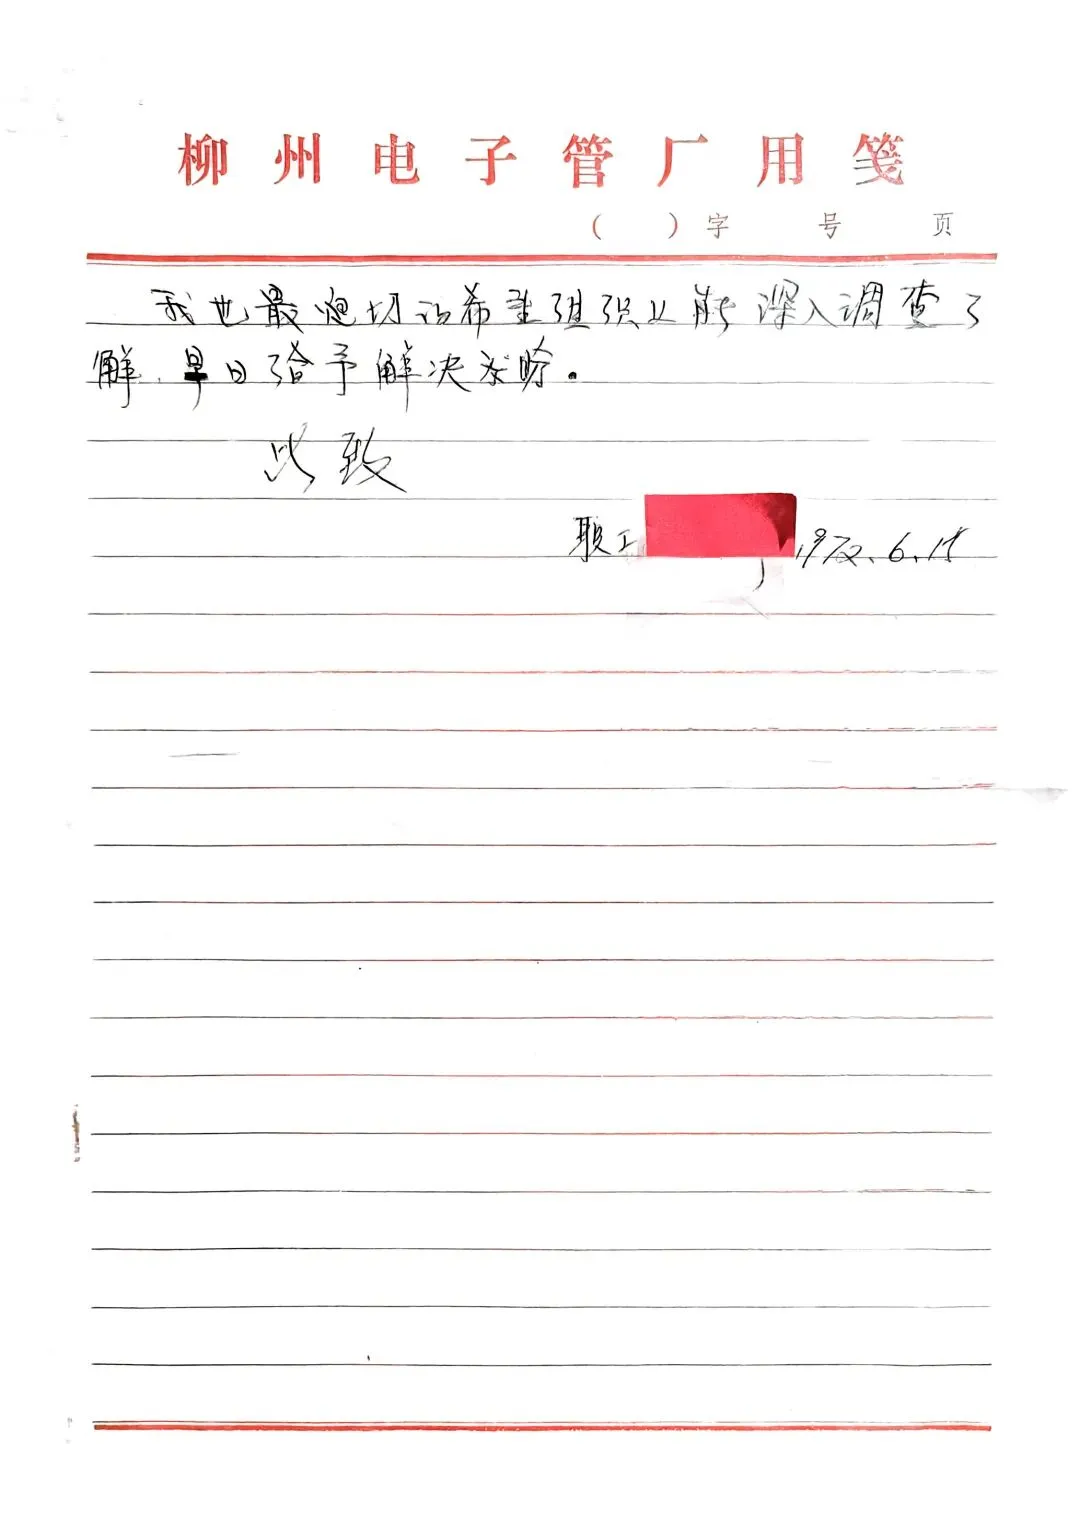 柳州电子管厂用笺
( ) 字 号 页
我也最迫切的希望组织上能深入调查了
解,早日给予解决为盼。
此致
职工 1972.6.15